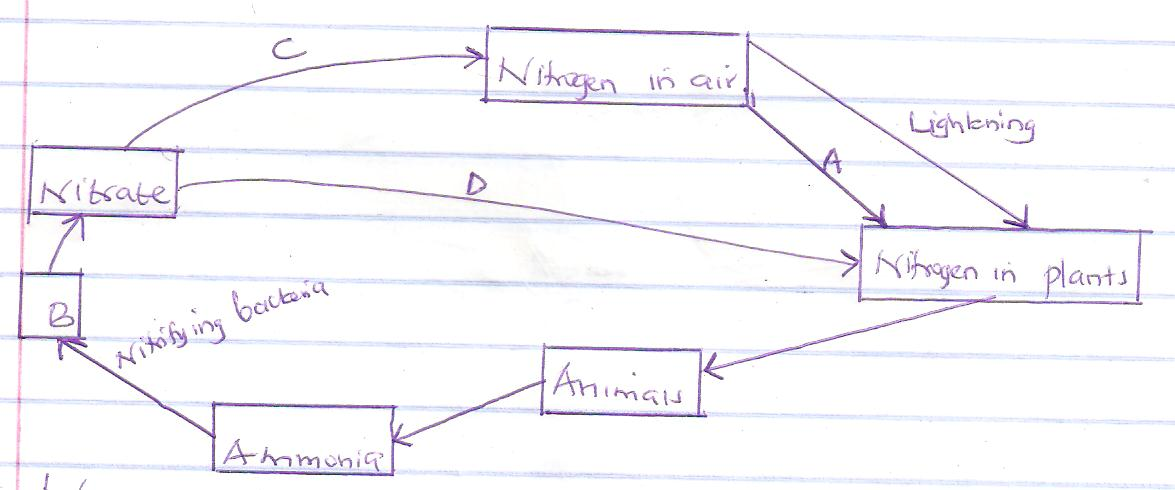 C
Nitrogen in air
Lightening
A
Nitrate
D
Nitrogen in plants
B
Nitrifying bacteria
Animals
Ammonia